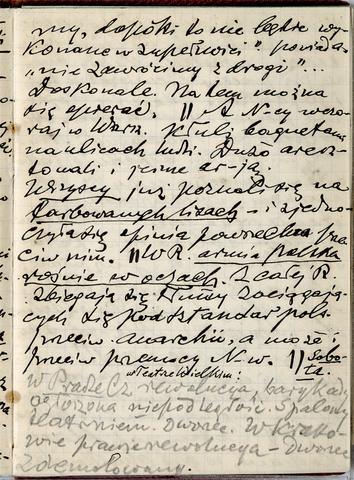 my, dopóki to nie będzie wy-
konane w zupełności", powiada
"nie zawrócimy z drogi"...
Doskonale. Na tem można
się oprzeć. || A N-cy wczo-
raj w Warsz. kłuli bagnetem
na ulicach ludzi. Dużo aresz-
towali i jeszcze ar-ją.
Wszyscy już poznali się na
farbowanych lisach - i zjedno-
czyła się opinia powszechna prze-
ciw nim. || W R. armia polska
rośnie w oczach. Z całej R.
zbiegają się tłumy zaciągają-
cych się pod sztandar pols.
przeciw anarchii, a może i
przeciw przemocy N-w. || Sobo-
ta.
w teatrze Wielkim.
W Pradze Cz. rewolucja, barykady
ogłoszona niepodległość. Spalony
teatr niem. Dworzec. W Krako-
wie prawie rewolucya - Dworzec
zdemolowany.